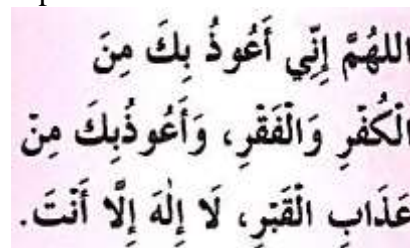 اللهُمَّ إِنِّي أَعُوذُ بِكَ مِنَ
الْكُفْرِ وَالْفَقْرِ، وَأَعُوذُبِكَ مِنْ
عَذَابِ الْقَبْرِ، لَا إِلٰهَ إِلَّا أَنْتَ.